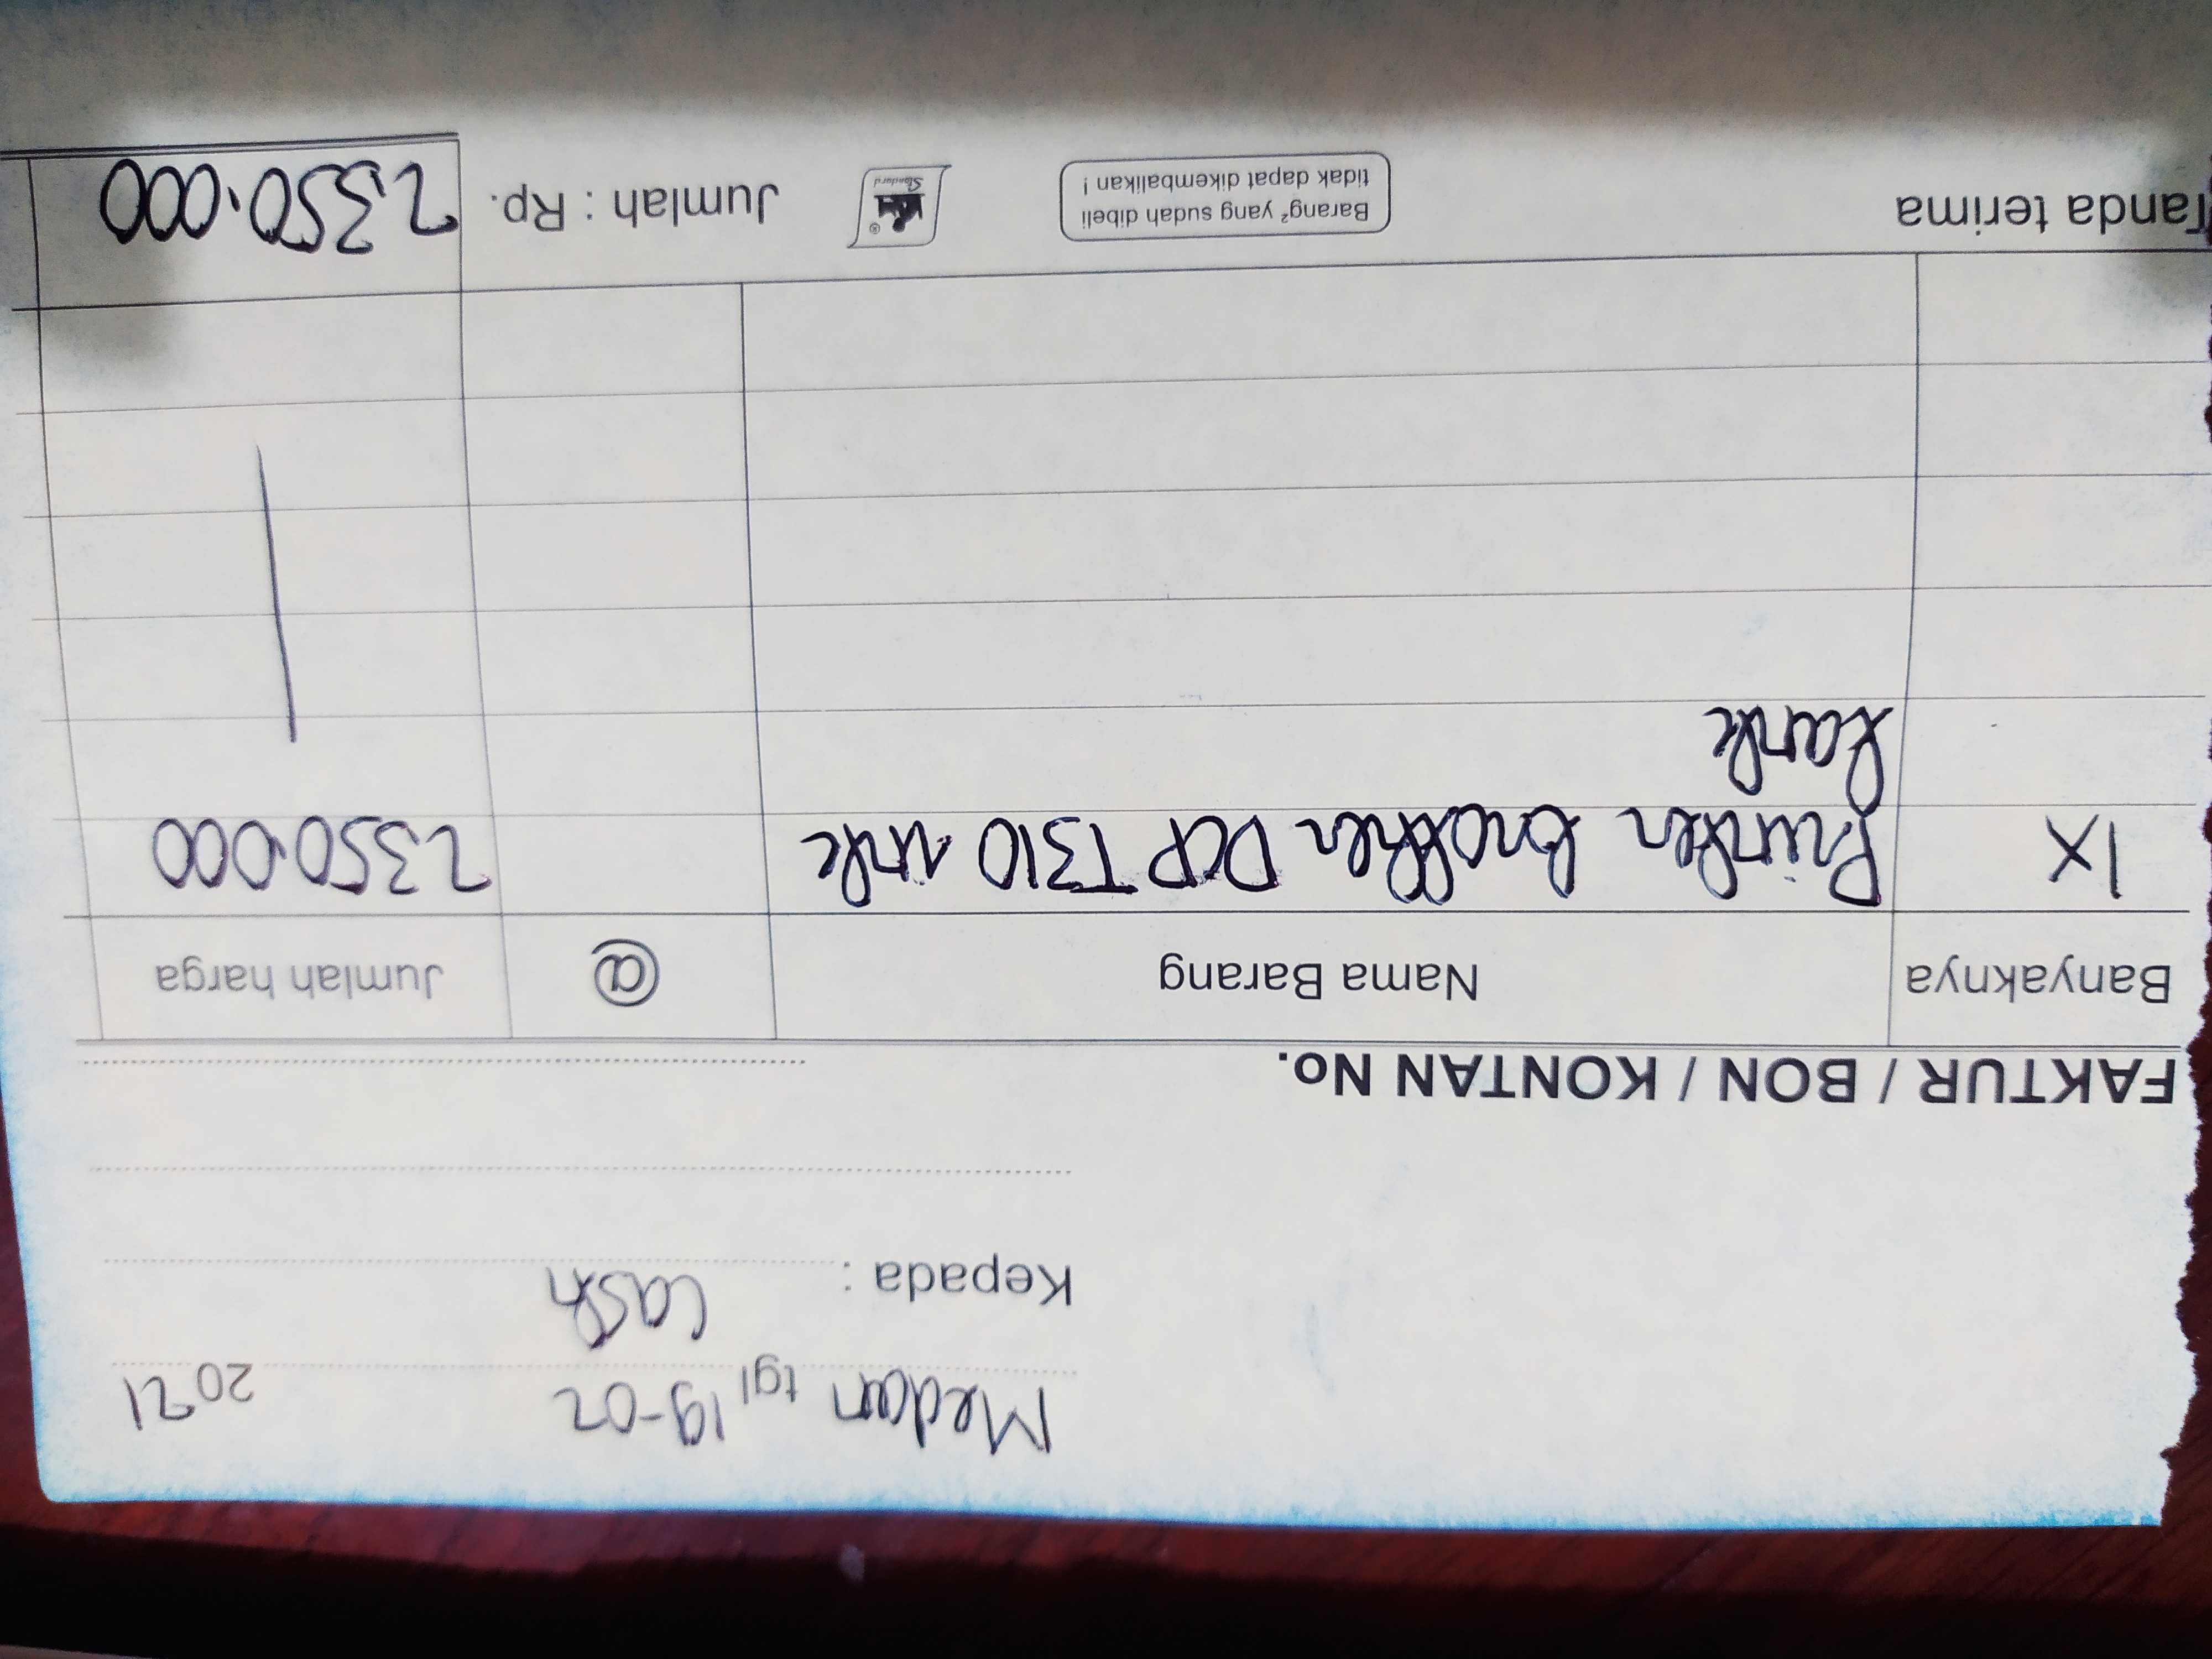 Medan tgl 19-02 2021
Kepada : Cash
FAKTUR / BON / KONTAN No.
Banyaknya Nama Barang @ Jumlah harga
1X Printer brother DCP T310 ink 2350.000
tank
Tanda terima
Barang² yang sudah dibeli
tidak dapat dikembalikan !
Standard
Jumlah : Rp. 2.350.000